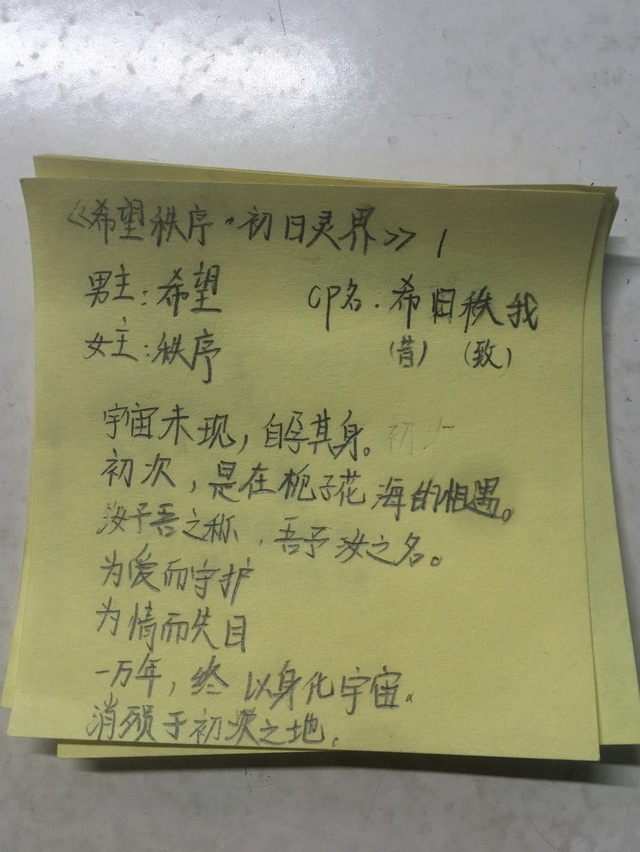 《希望秩序·初日灵界》 1
男主：希望 CP名·希旧秩我
女主：秩序 （昔）（致）
宇宙未现，自孕其身。初
初次，是在栀子花海的相遇。
汝予吾之称，吾予汝之名。
为爱而守护
为情而失目
一万年，终以身化宇宙。
消殒于初次之地。